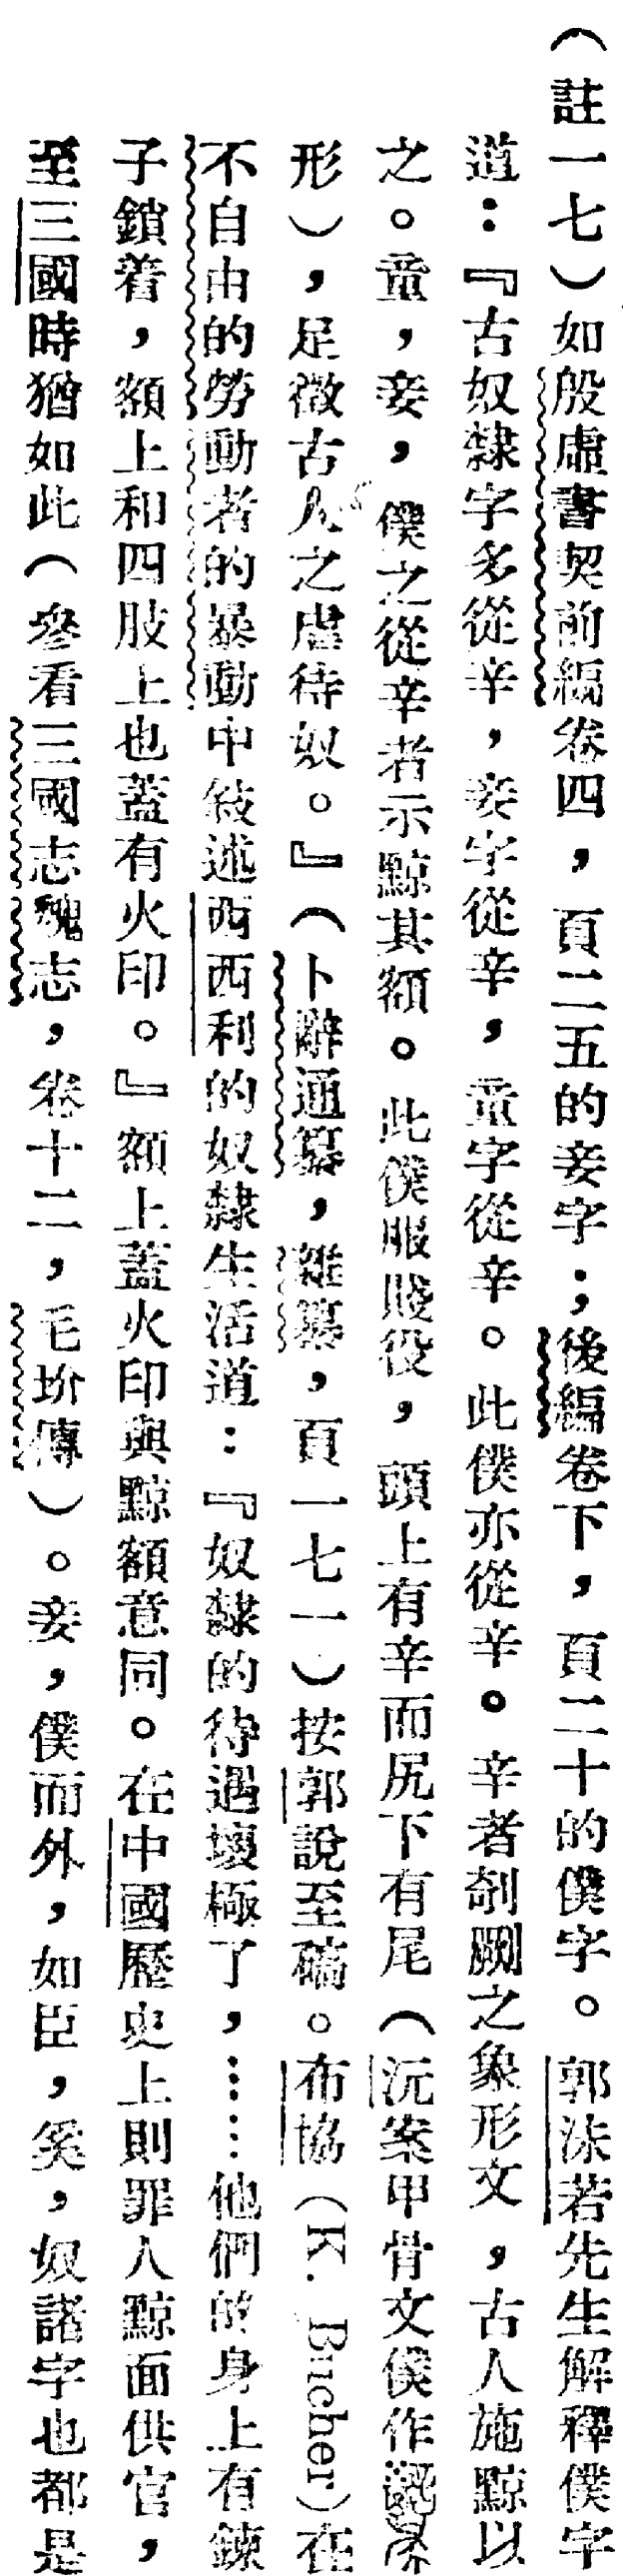 （註一七）如殷虛書契前編卷四，頁二五的妾字；後編卷下，頁二十的僕字。郭沫若先生解釋僕字
道：『古奴隸字多從辛，妾字從辛，童字從辛。此僕亦從辛。辛者剞劂之象形文，古人施黥以
之。童，妾，僕之從辛者示黥其額。此僕服賤役，頭上有辛而尻下有尾（沅案甲骨文僕作
形），足徵古人之虐待奴。』（卜辭通纂，雜纂，頁一七一）按郭說至確。布協（K. Bücher）在
不自由的勞動者的暴動中敍述西西利的奴隸生活道：『奴隸的待遇壞極了，……他們的身上有鍊
子鎖着，額上和四肢上也蓋有火印。』額上蓋火印與黥額意同。在中國歷史上則罪人黥面供官，
至三國時猶如此（參看三國志魏志，卷十二，毛玠傳）。妾，僕而外，如臣，奚，奴諸字也都是